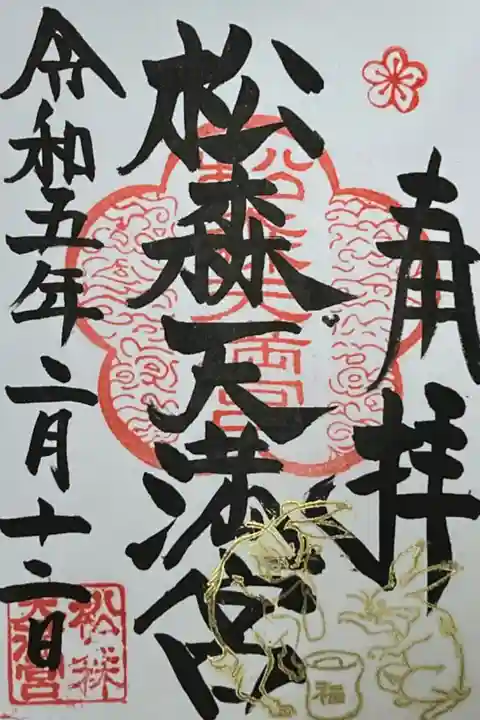 奉拝
松森天満宮
令和五年二月十二日
松森天満宮
松森天満宮
福